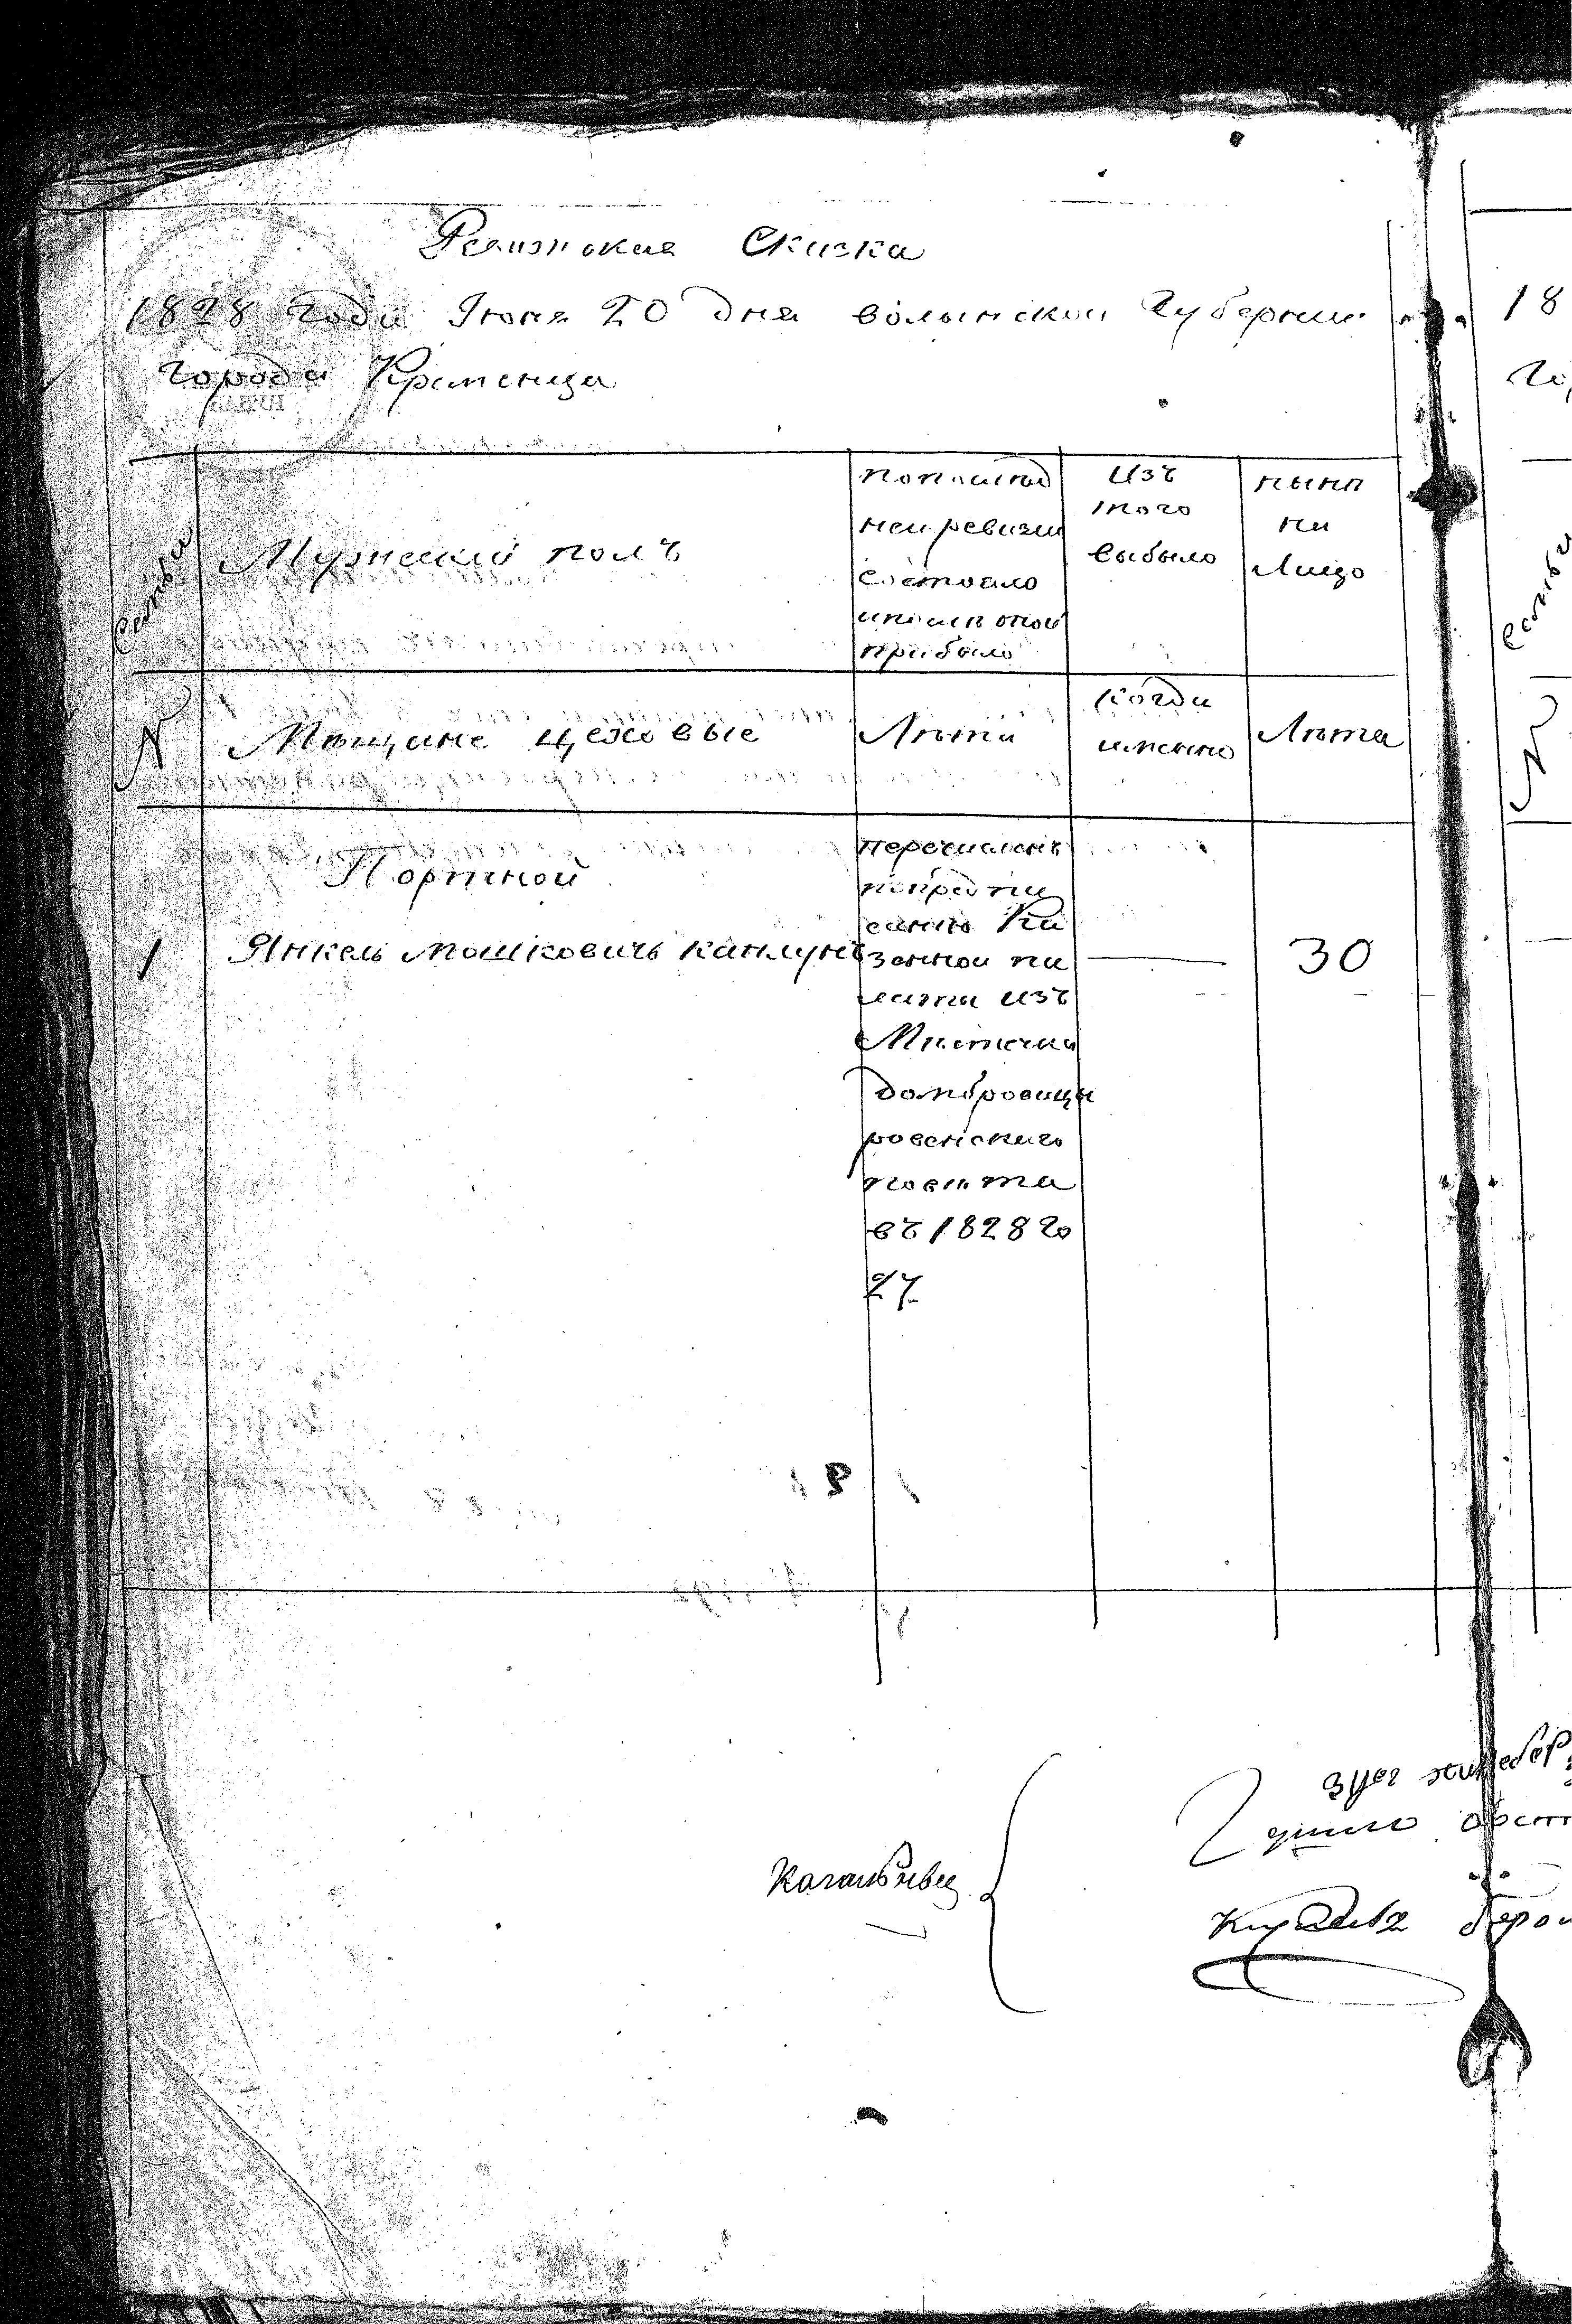 Ревизская Сказка
1828 Года Іюня 20 дня волынской Губернии
Города Кременца
Семьи
Мужеский полъ
попослѣд
ней ревизіи
состояло
ипослѣ оной
прибыло
Изъ
того
выбыло
нынѣ
на
Лицо
N
Мѣщане цеховые
Лѣта
когда
имянно
Лѣта
Портной
1
Янкель Мошковичь каплунъ
перечисленъ
попредпи
санію Ка
зенной па
латы изъ
Мѣстечка
домбровицы
ровенскаго
повѣта
въ 1828 го
—
30
Кагальные
18